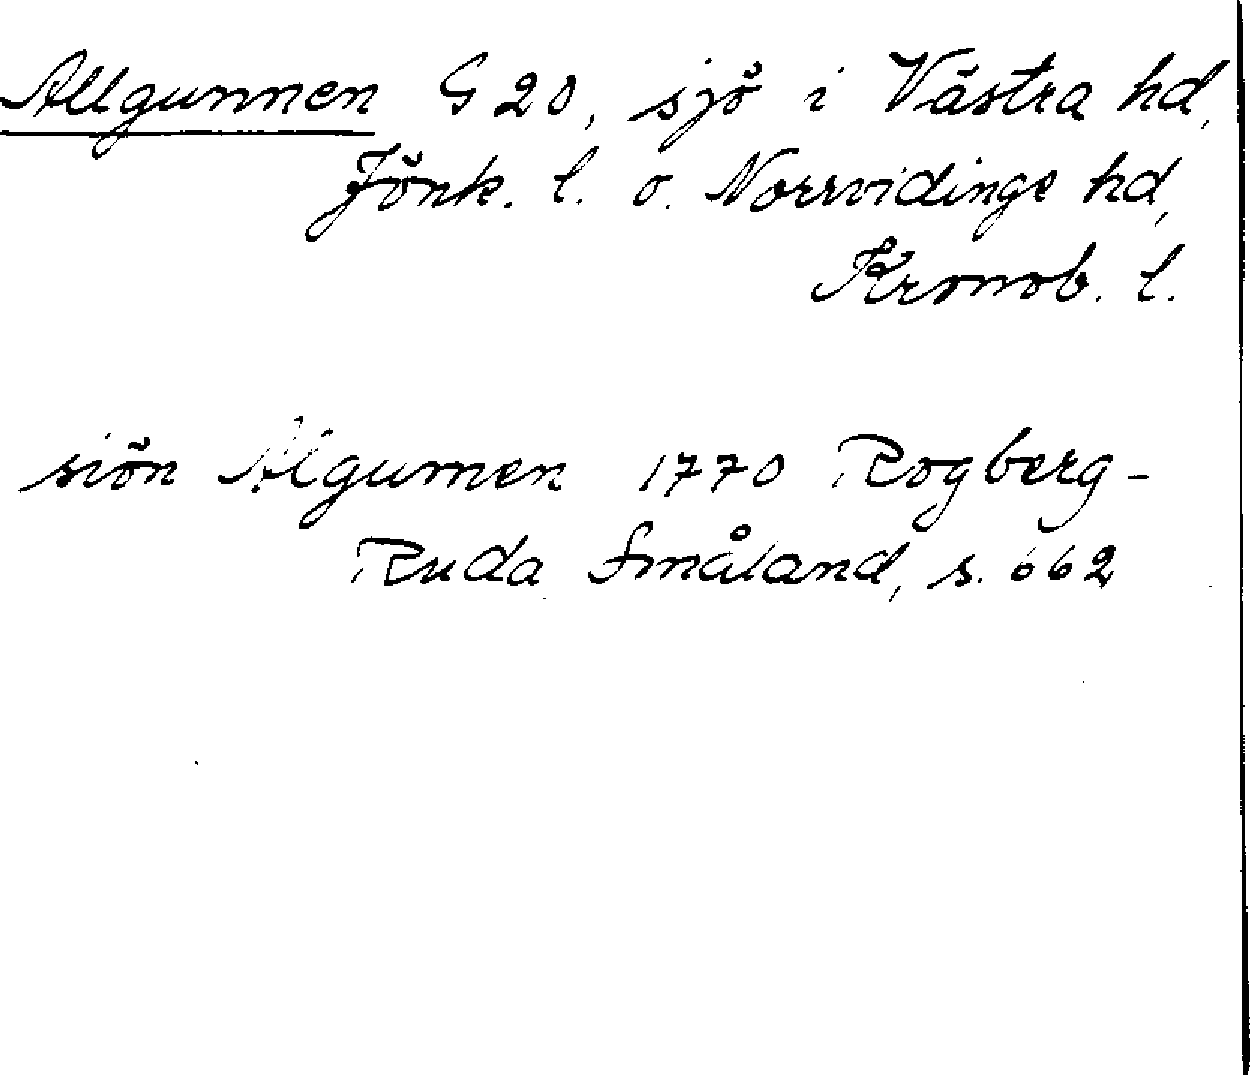 Allgunnen G 20, sjö i Västra hd,
Jönk. l. o. Norrvidinge hd,
Kronob. l.
siön Algunnen 1770 Rogberg-
Ruda Småland, s. 662